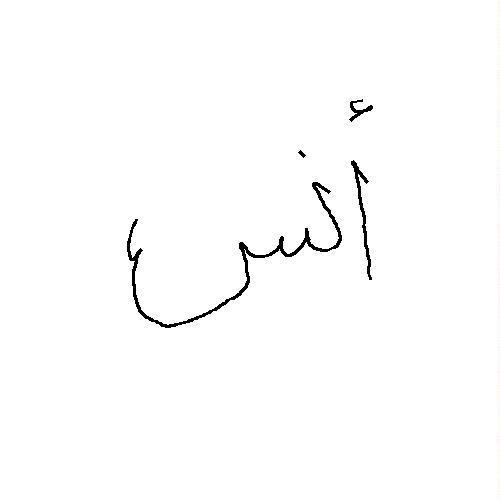 أنس